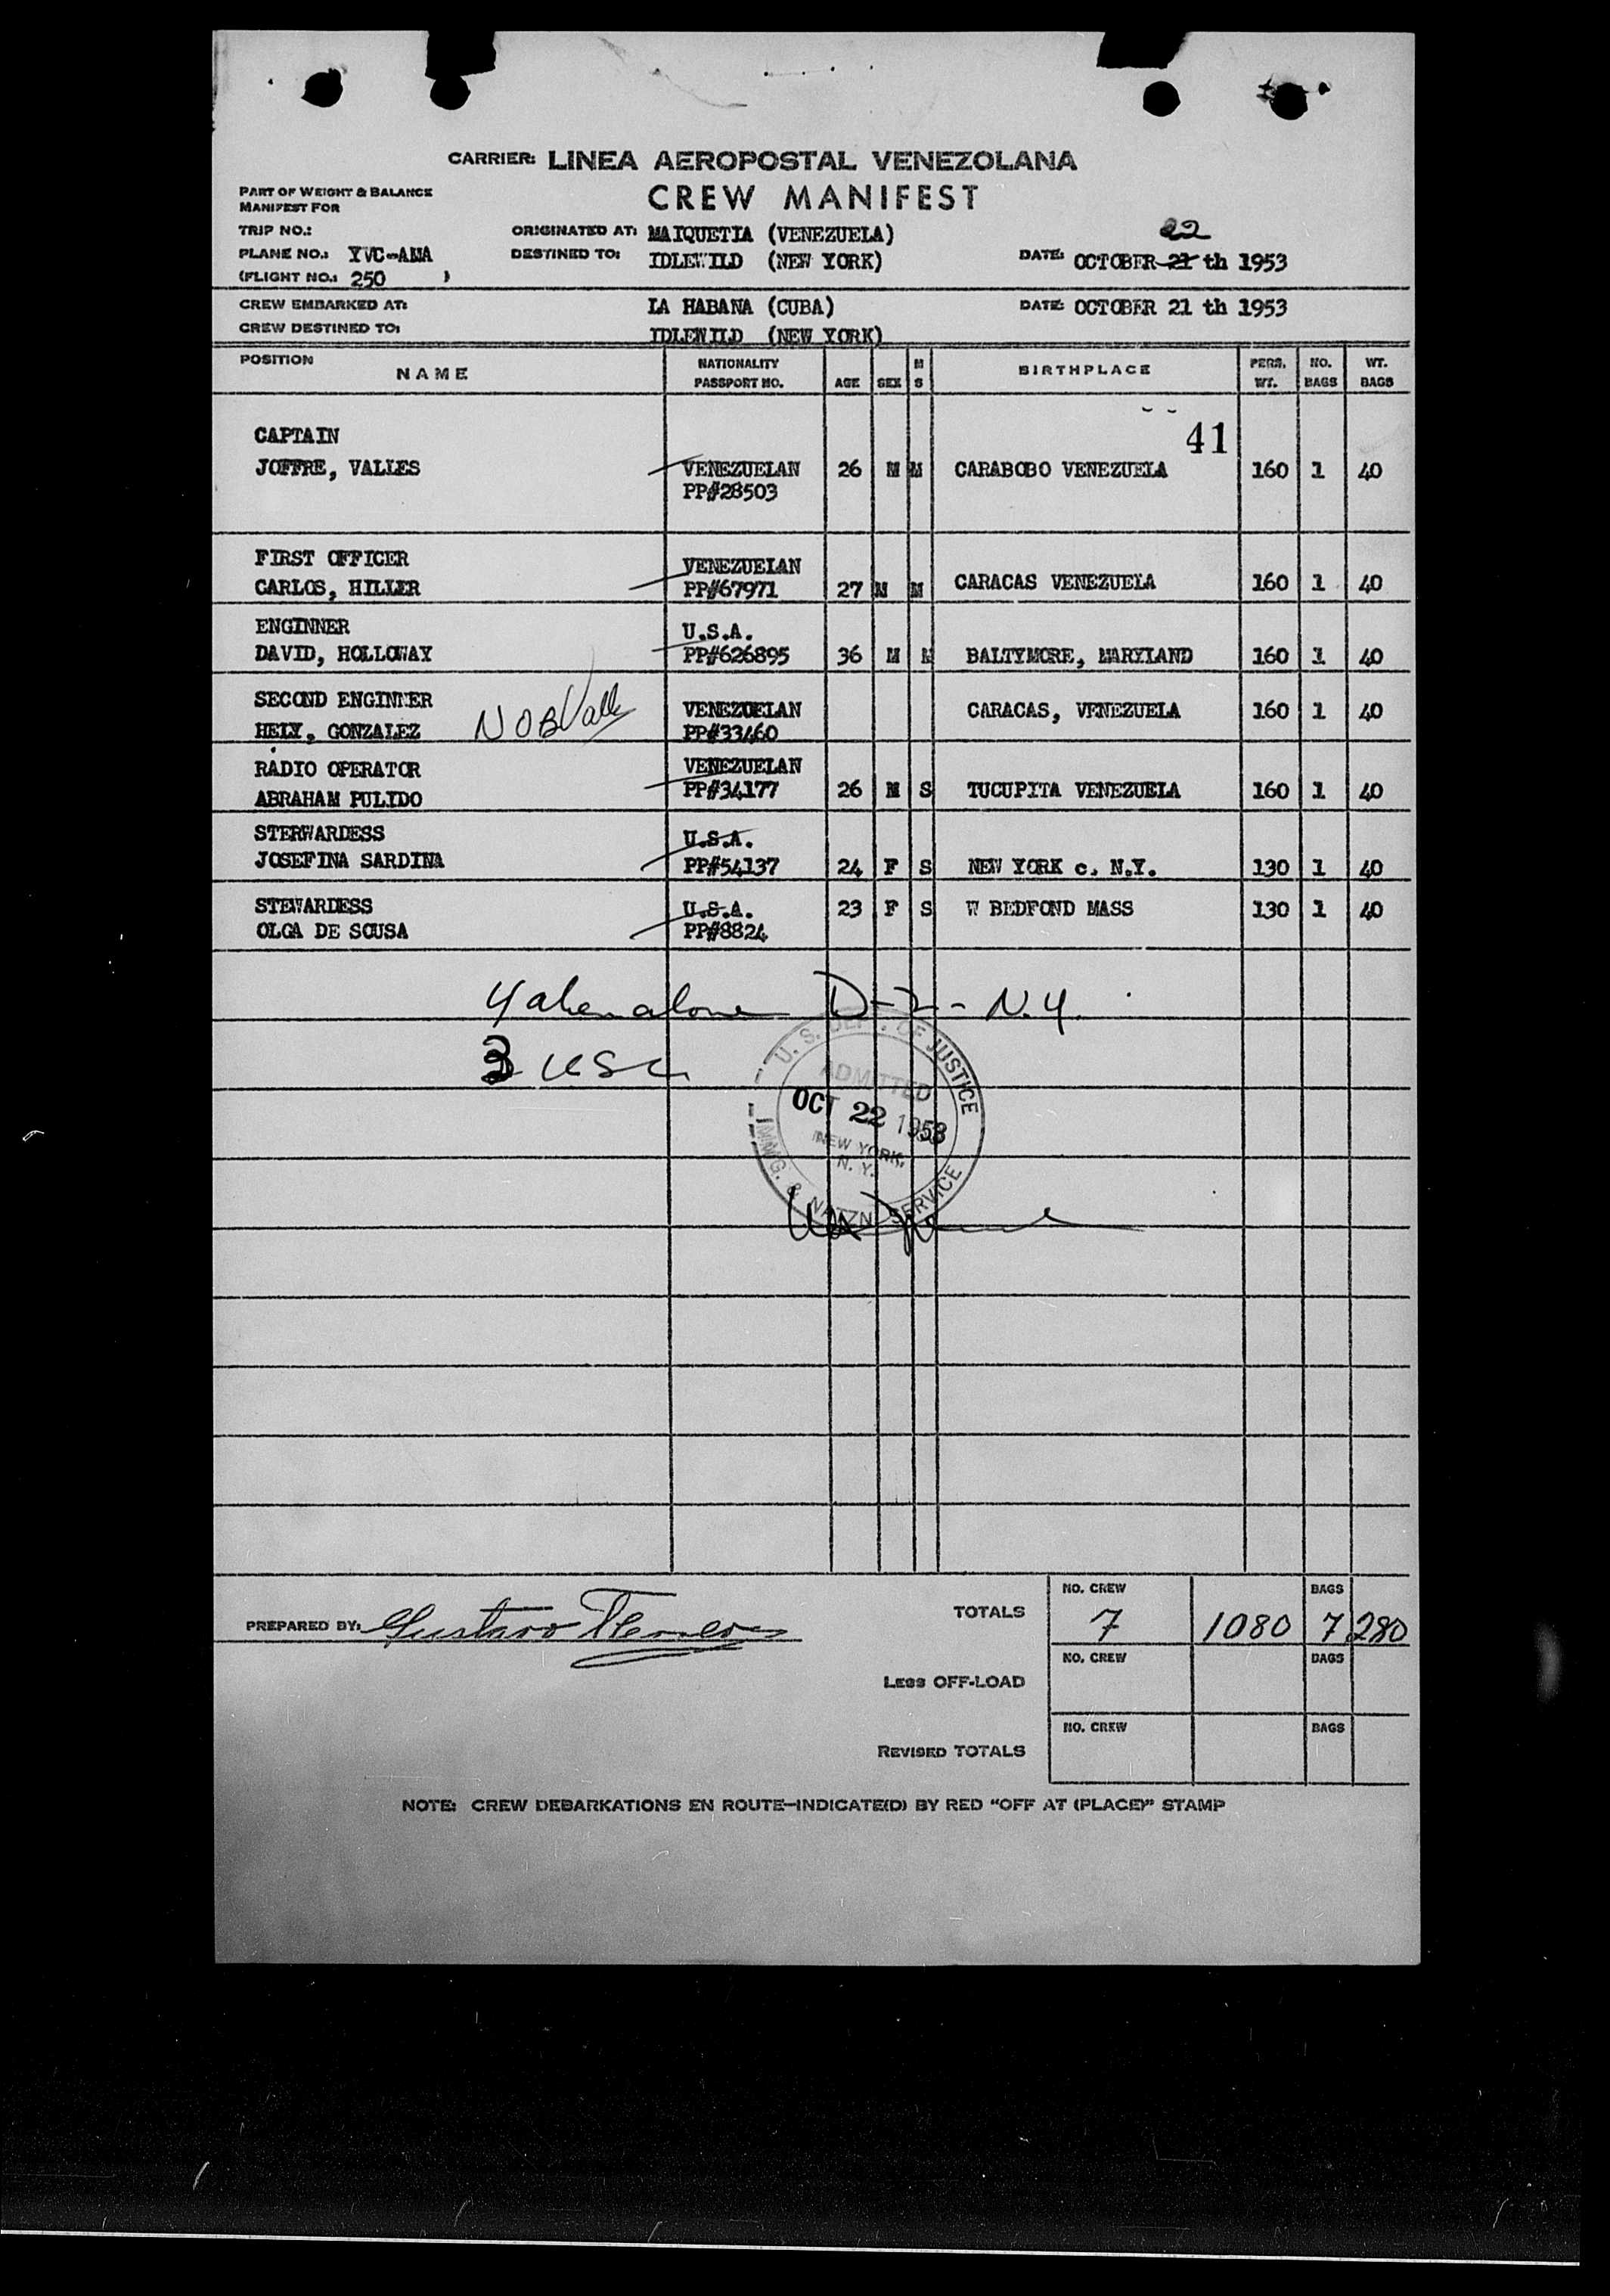 CARRIER: LINEA AEROPOSTAL VENEZOLANA
PART OF WEIGHT & BALANCE
MANIFEST FOR
CREW MANIFEST
TRIP NO.:
ORIGINATED AT: MAIQUETIA (VENEZUELA)
22
PLANE NO.: YVC-AMA
DESTINED TO: IDLEWILD (NEW YORK)
DATE: OCTOBER 21 th 1953
(FLIGHT NO.: 250 )
CREW EMBARKED AT: LA HABANA (CUBA) DATE: OCTOBER 21 th 1953
CREW DESTINED TO: IDLEWILD (NEW YORK)
POSITION NAME NATIONALITY PASSPORT NO. AGE SEX M S BIRTHPLACE PERS. WT. NO. BAGS WT. BAGS
41
CAPTAIN
JOFFRE, VALLES VENEZUELAN 26 M M CARABOBO VENEZUELA 160 1 40
PP#28503
FIRST OFFICER VENEZUELAN
CARLOS, HILLER PP#67971 27 M M CARACAS VENEZUELA 160 1 40
ENGINNER U.S.A.
DAVID, HOLLOWAY PP#626895 36 M M BALTYMORE, MARYLAND 160 1 40
SECOND ENGINNER VENEZUELAN CARACAS, VENEZUELA 160 1 40
HELY, GONZALEZ NOB PP#33460
RADIO OPERATOR VENEZUELAN
ABRAHAM PULIDO PP#34177 26 M S TUCUPITA VENEZUELA 160 1 40
STERWARDESS U.S.A.
JOSEFINA SARDINA PP#54137 24 F S NEW YORK c. N.Y. 130 1 40
STEWARDESS U.S.A. 23 F S W BEDFOND MASS 130 1 40
OLGA DE SOUSA PP#8824
D-2- N.Y.
3 USC
U. S. DEPT. OF JUSTICE
ADMITTED
OCT 22 1953
NEW YORK,
N. Y.
IMMIG. & NATZN SERVICE
PREPARED BY: Gustavo
TOTALS NO. CREW 7 1080 BAGS 7 280
LESS OFF-LOAD NO. CREW BAGS
REVISED TOTALS NO. CREW BAGS
NOTE: CREW DEBARKATIONS EN ROUTE—INDICATE(D) BY RED "OFF AT (PLACE)" STAMP